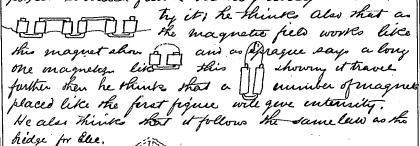 try it, he thinks also that as
the magnetic field works like
this magnet alone and as Sprague says a long
one magnetizes like this showing it travels
further then he thinks that a number of magnets
placed like the first figure will give intensity.
He also thinks that it follows the same law as the
bridge for Elec.